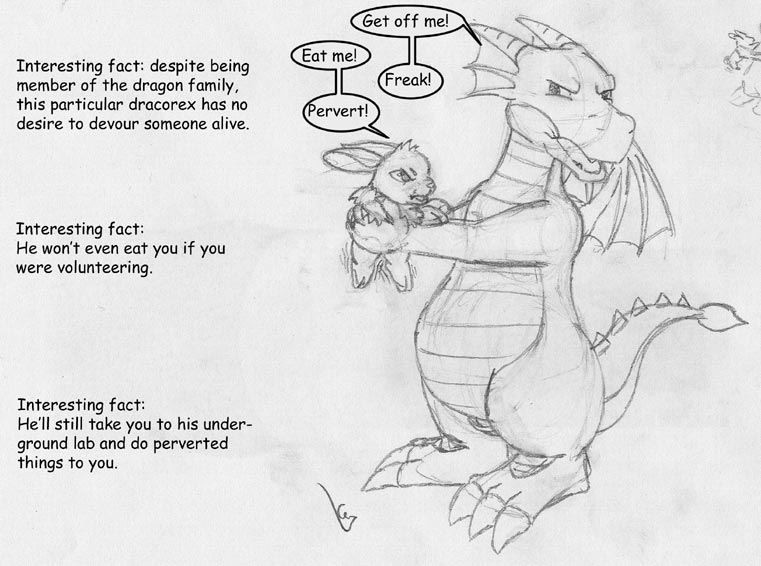 Get off me!
Eat me!
Freak!
Pervert!
Interesting fact: despite being
member of the dragon family,
this particular dracorex has no
desire to devour someone alive.
Interesting fact:
He won't even eat you if you
were volunteering.
Interesting fact:
He'll still take you to his under-
ground lab and do perverted
things to you.